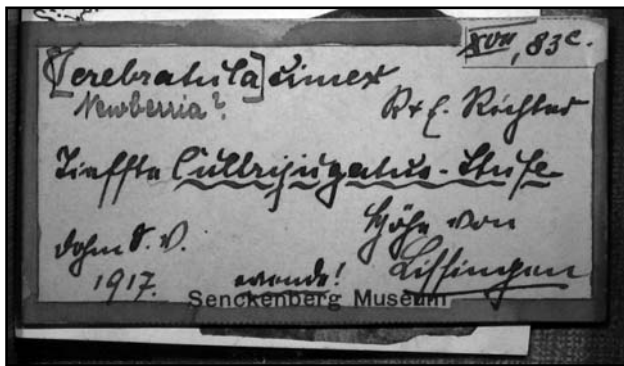 XVII, 83c.
[Terebratula] cimex
Newberria?
R & E. Richter
Tiefste Cultrijugatus-Stufe
Höhe von
Dohm S. V.
Lissingen
1917. wende!
Senckenberg Museum